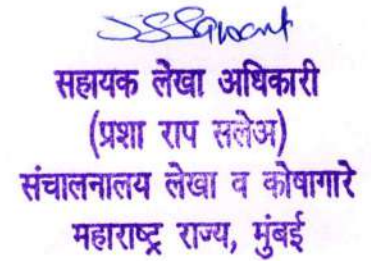 सहायक लेखा अधिकारी
(प्रशा राप सलेअ)
संचालनालय लेखा व कोषागारे
महाराष्ट्र राज्य, मुंबई